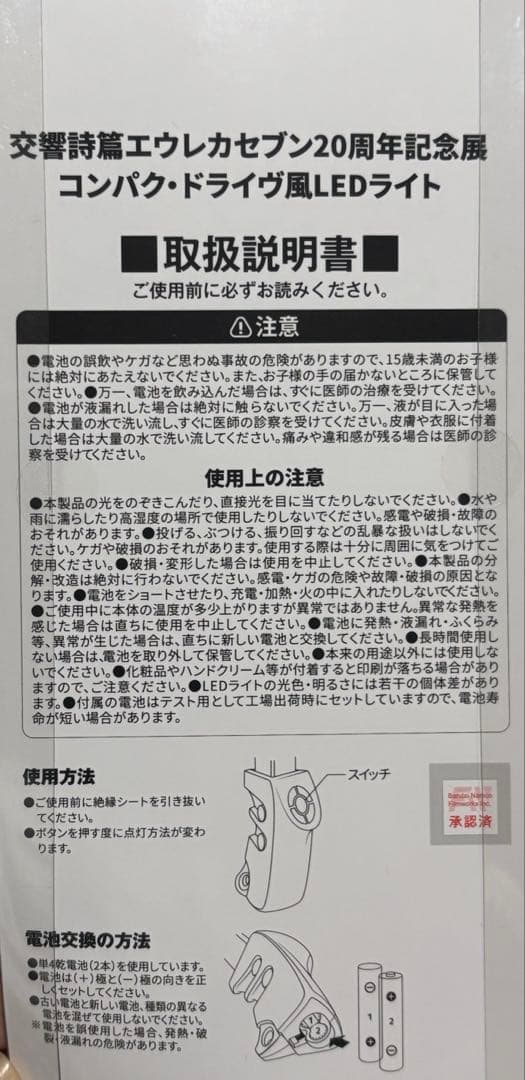 交響詩篇エウレカセブン20周年記念展
コンパク・ドライヴ風LEDライト
■取扱説明書■
ご使用前に必ずお読みください。
⚠注意
●電池の誤飲やケガなど思わぬ事故の危険がありますので、15歳未満のお子様
には絶対にあたえないでください。また、お子様の手の届かないところに保管して
ください。●万一、電池を飲み込んだ場合は、すぐに医師の治療を受けてください。
●電池が液漏れした場合は絶対に触らないでください。万一、液が目に入った場
合は大量の水で洗い流し、すぐに医師の診察を受けてください。皮膚や衣服に付着
した場合は大量の水で洗い流してください。痛みや違和感が残る場合は医師の診
察を受けてください。
使用上の注意
●本製品の光をのぞきこんだり、直接光を目に当てたりしないでください。●水や
雨に濡らしたり高湿度の場所で使用したりしないでください。感電や破損・故障の
おそれがあります。●投げる、ぶつける、振り回すなどの乱暴な扱いはしないでく
ださい。ケガや破損のおそれがあります。使用する際は十分に周囲に気をつけてご
使用ください。●破損・変形した場合は使用を中止してください。●本製品の分
解・改造は絶対に行わないでください。感電・ケガの危険や故障・破損の原因とな
ります。●電池をショートさせたり、充電・加熱・火の中に入れたりしないでください。
●ご使用中に本体の温度が多少上がりますが異常ではありません。異常な発熱を
感じた場合は直ちに使用を中止してください。●電池に発熱・液漏れ・ふくらみ
等、異常が生じた場合は、直ちに新しい電池と交換してください。●長時間使用し
ない場合は、電池を取り外して保管してください。●本来の用途以外には使用しな
いでください。●化粧品やハンドクリーム等が付着すると印刷が落ちる場合があり
ますので、ご注意ください。●LEDライトの光色・明るさには若干の個体差があり
ます。●付属の電池はテスト用として工場出荷時にセットしていますので、電池寿
命が短い場合があります。
使用方法
●ご使用前に絶縁シートを引き抜い
てください。
●ボタンを押す度に点灯方法が変わ
ります。
スイッチ
Bandai Namco
Filmworks Inc.
承認済
電池交換の方法
●単4乾電池(2本)を使用しています。
●電池は(+)極と(−)極の向きを正
しくセットしてください。
●古い電池と新しい電池、種類の異なる
電池を混ぜて使用しないでください。
※電池を誤使用した場合、発熱・破
裂・液漏れの危険があります。
1
2
1
2